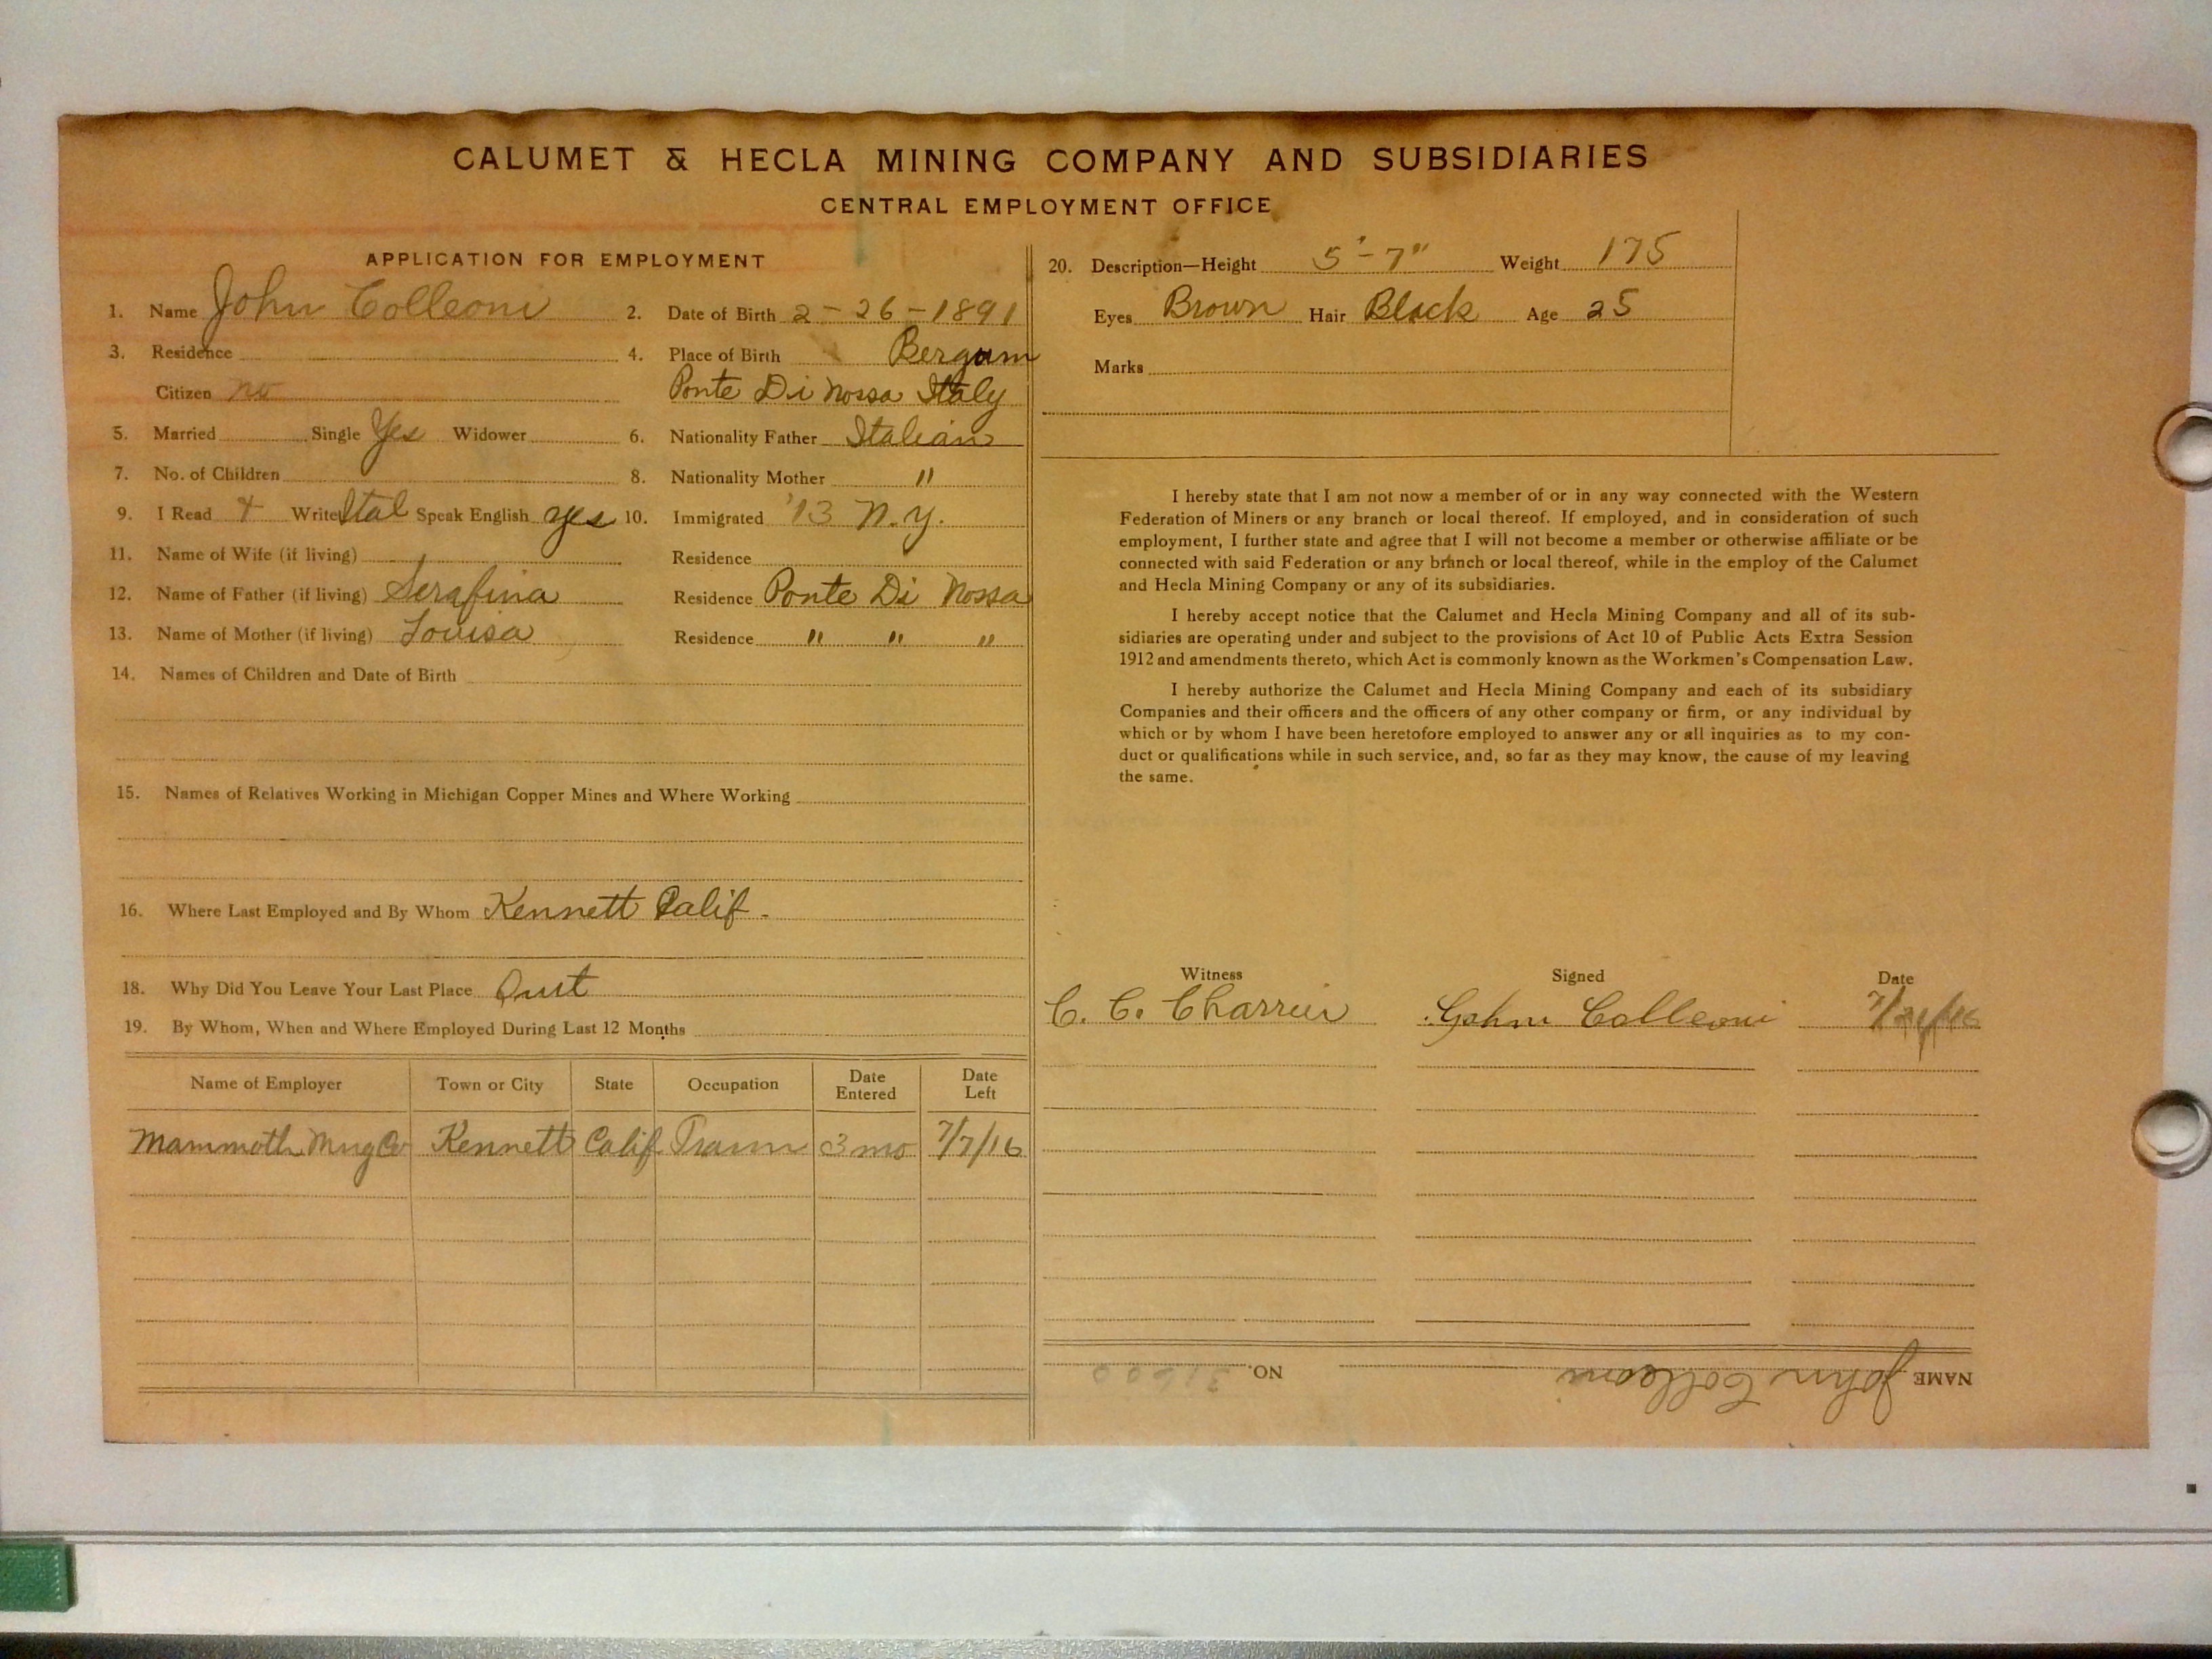 CALUMET & HECLA MINING COMPANY AND SUBSIDIARIES
CENTRAL EMPLOYMENT OFFICE
APPLICATION FOR EMPLOYMENT
1. Name John Colleoni 2. Date of Birth 2-26-1891
3. Residence 4. Place of Birth Bergum
Citizen no Ponte Di Nossa Italy
5. Married Single Yes Widower 6. Nationality Father Italian
7. No. of Children 8. Nationality Mother "
9. I Read + Write Ital Speak English yes 10. Immigrated '13 N.Y.
11. Name of Wife (if living) Residence
12. Name of Father (if living) Serafina Residence Ponte Di Nossa
13. Name of Mother (if living) Louisa Residence " " "
14. Names of Children and Date of Birth
15. Names of Relatives Working in Michigan Copper Mines and Where Working
16. Where Last Employed and By Whom Kennett Calif.
18. Why Did You Leave Your Last Place Quit
19. By Whom, When and Where Employed During Last 12 Months
Name of Employer Town or City State Occupation Date Entered Date Left
Mammoth Mng Co Kennett Calif Tram 3 mo 7/7/16
20. Description—Height 5'-7" Weight 175
Eyes Brown Hair Black Age 25
Marks
I hereby state that I am not now a member of or in any way connected with the Western
Federation of Miners or any branch or local thereof. If employed, and in consideration of such
employment, I further state and agree that I will not become a member or otherwise affiliate or be
connected with said Federation or any branch or local thereof, while in the employ of the Calumet
and Hecla Mining Company or any of its subsidiaries.
I hereby accept notice that the Calumet and Hecla Mining Company and all of its sub-
sidiaries are operating under and subject to the provisions of Act 10 of Public Acts Extra Session
1912 and amendments thereto, which Act is commonly known as the Workmen's Compensation Law.
I hereby authorize the Calumet and Hecla Mining Company and each of its subsidiary
Companies and their officers and the officers of any other company or firm, or any individual by
which or by whom I have been heretofore employed to answer any or all inquiries as to my con-
duct or qualifications while in such service, and, so far as they may know, the cause of my leaving
the same.
Witness Signed Date
C. C. Gohni Colleoni
NAME John Colleoni NO. 31600